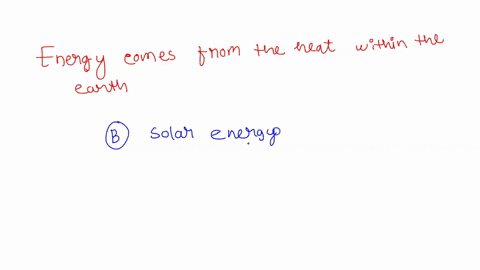 Energy comes from the heat within the
earth
B solar energy